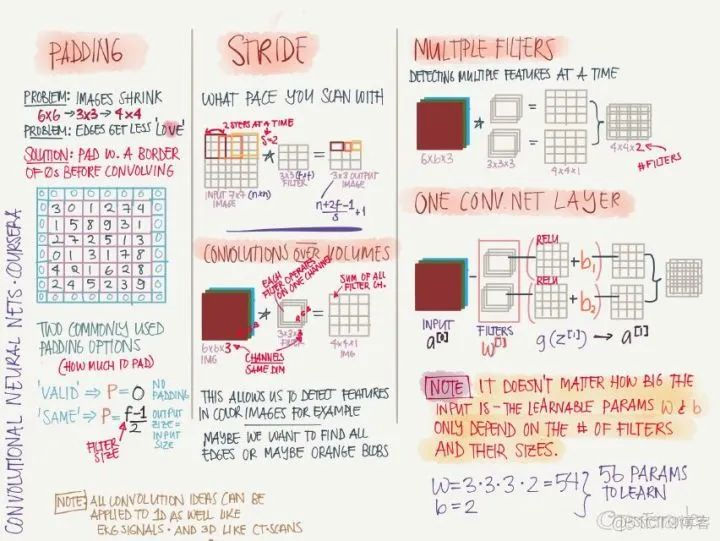 CONVOLUTIONAL NEURAL NETS · COURSERA
PADDING
PROBLEM: IMAGES SHRINK
6x6 → 3x3 → 4x4
PROBLEM: EDGES GET LESS 'LOVE'
SOLUTION: PAD W. A BORDER
OF 0s BEFORE CONVOLVING
0 0 0 0 0 0 0 0
0 3 0 1 2 7 4 0
0 1 5 8 9 3 1 0
0 2 7 2 5 1 3 0
0 0 1 3 1 7 8 0
0 4 2 1 6 2 8 0
0 2 4 5 2 3 9 0
0 0 0 0 0 0 0 0
TWO COMMONLY USED
PADDING OPTIONS
(HOW MUCH TO PAD)
'VALID' ⇒ P = 0 NO PADDING
'SAME' ⇒ P = f-1/2 OUTPUT SIZE = INPUT SIZE
FILTER SIZE
NOTE: ALL CONVOLUTION IDEAS CAN BE
APPLIED TO 1D AS WELL LIKE
EKG SIGNALS · AND 3D LIKE CT-SCANS
STRIDE
WHAT PACE YOU SCAN WITH
2 STEPS AT A TIME
S=2
* =
INPUT 7x7 (nxn)
IMAGE
3x3 (fxf)
FILTER
3x3 OUTPUT
IMAGE
n+2f-1/s +1
CONVOLUTIONS OVER VOLUMES
EACH
FILTER OPERATES
ON ONE CHANNEL
SUM OF ALL
FILTER CH.
* =
6x6x3
IMG
3x3x3
FILTER
4x4x1
IMG
CHANNELS
SAME DIM
THIS ALLOWS US TO DETECT FEATURES
IN COLOR IMAGES FOR EXAMPLE
MAYBE WE WANT TO FIND ALL
EDGES OR MAYBE ORANGE BLOBS
MULTIPLE FILTERS
DETECTING MULTIPLE FEATURES AT A TIME
* = =
6x6x3
3x3x3
4x4x1
4x4x2
#FILTERS
ONE CONV. NET LAYER
RELU ( + b1 )
RELU ( + b2 )
INPUT
a[0]
FILTERS
W[1]
g(z[1]) → a[1]
NOTE IT DOESN'T MATTER HOW BIG THE
INPUT IS - THE LEARNABLE PARAMS W & b
ONLY DEPEND ON THE # OF FILTERS
AND THEIR SIZES.
W = 3·3·3·2 = 54
b = 2
56 PARAMS
TO LEARN